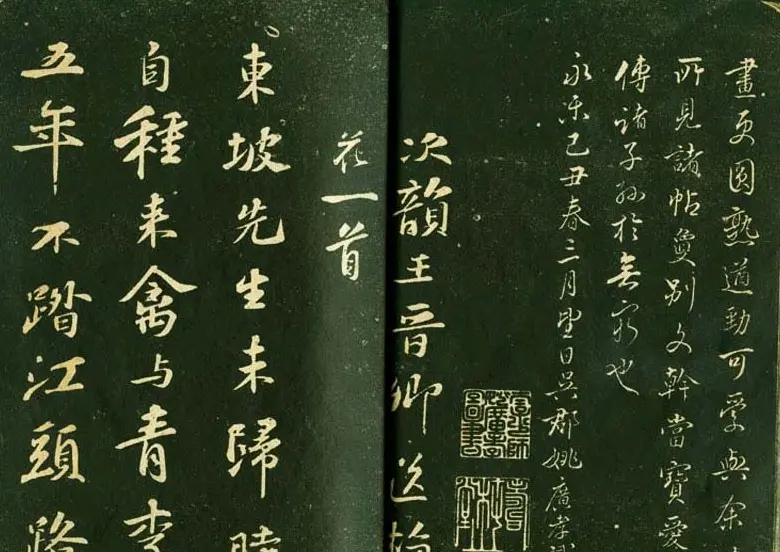 畫更圓熟遒勁可愛與余
所見諸帖敻別文幹當寶愛
傳諸子孫於無窮也
永樂己丑春三月望日吳郡姚廣孝
次韻王晉卿送梅
花一首
東坡先生未歸時
自種来禽與青李
五年不踏江頭路